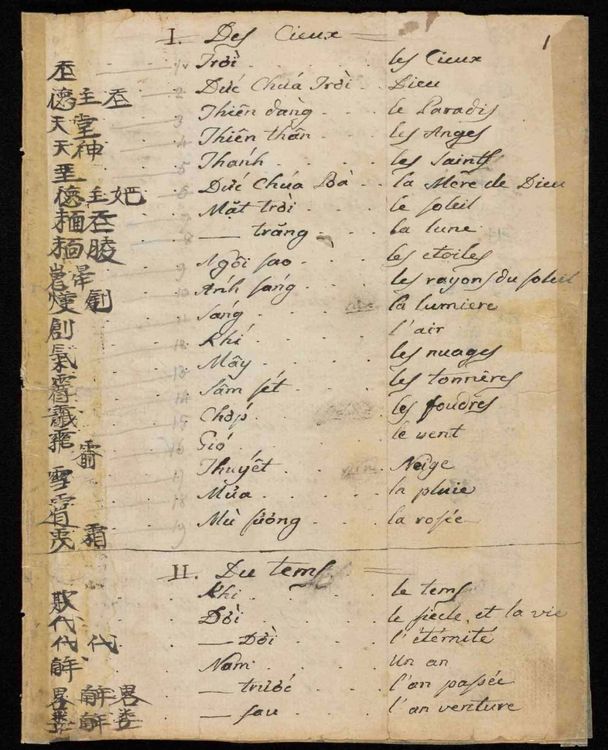 1
I. Des Cieux
𡗶 1 Trời les Cieux
德主𡗶 2 Đức Chúa Trời Dieu
天堂 3 Thiên đàng le Paradis
天神 4 Thiên thần les Anges
聖 5 Thánh les Saints
德主妑 6 Đức Chúa Bà la Mère de Dieu
𩈘𡗶 7 Mặt trời le soleil
𩈘 8 — trăng la lune
9 Ngôi sao les etoiles
創 10 Ánh sáng les rayons du soleil
創 Sáng la lumiere
氣 12 Khí l'air
13 Mây les nuages
Sấm sét les tonnères
15 Chớp les foudres
16 Gió le vent
雪 17 Thuyết Neige
18 Mưa la pluie
霜 19 Mù sương la rosée
II. Du tems
Khi le tems
代 Đời le siècle et la vie
代代 — Đời l'éternité
Nam Un an
— trước l'an passée
— sau l'an venture